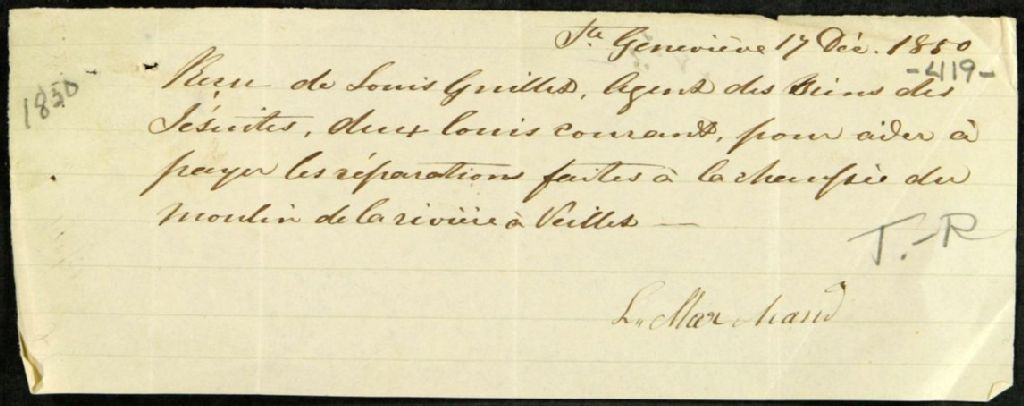 Ste Geneviève 17 Déc. 1850
-419-
1850
Reçu de Louis Guillet, Agent des Biens des
Jésuites, deux louis courant, pour aider à
payer les réparations faites à la chaussée du
moulin de la rivière à Veillet —
T.-R
L. Marchand